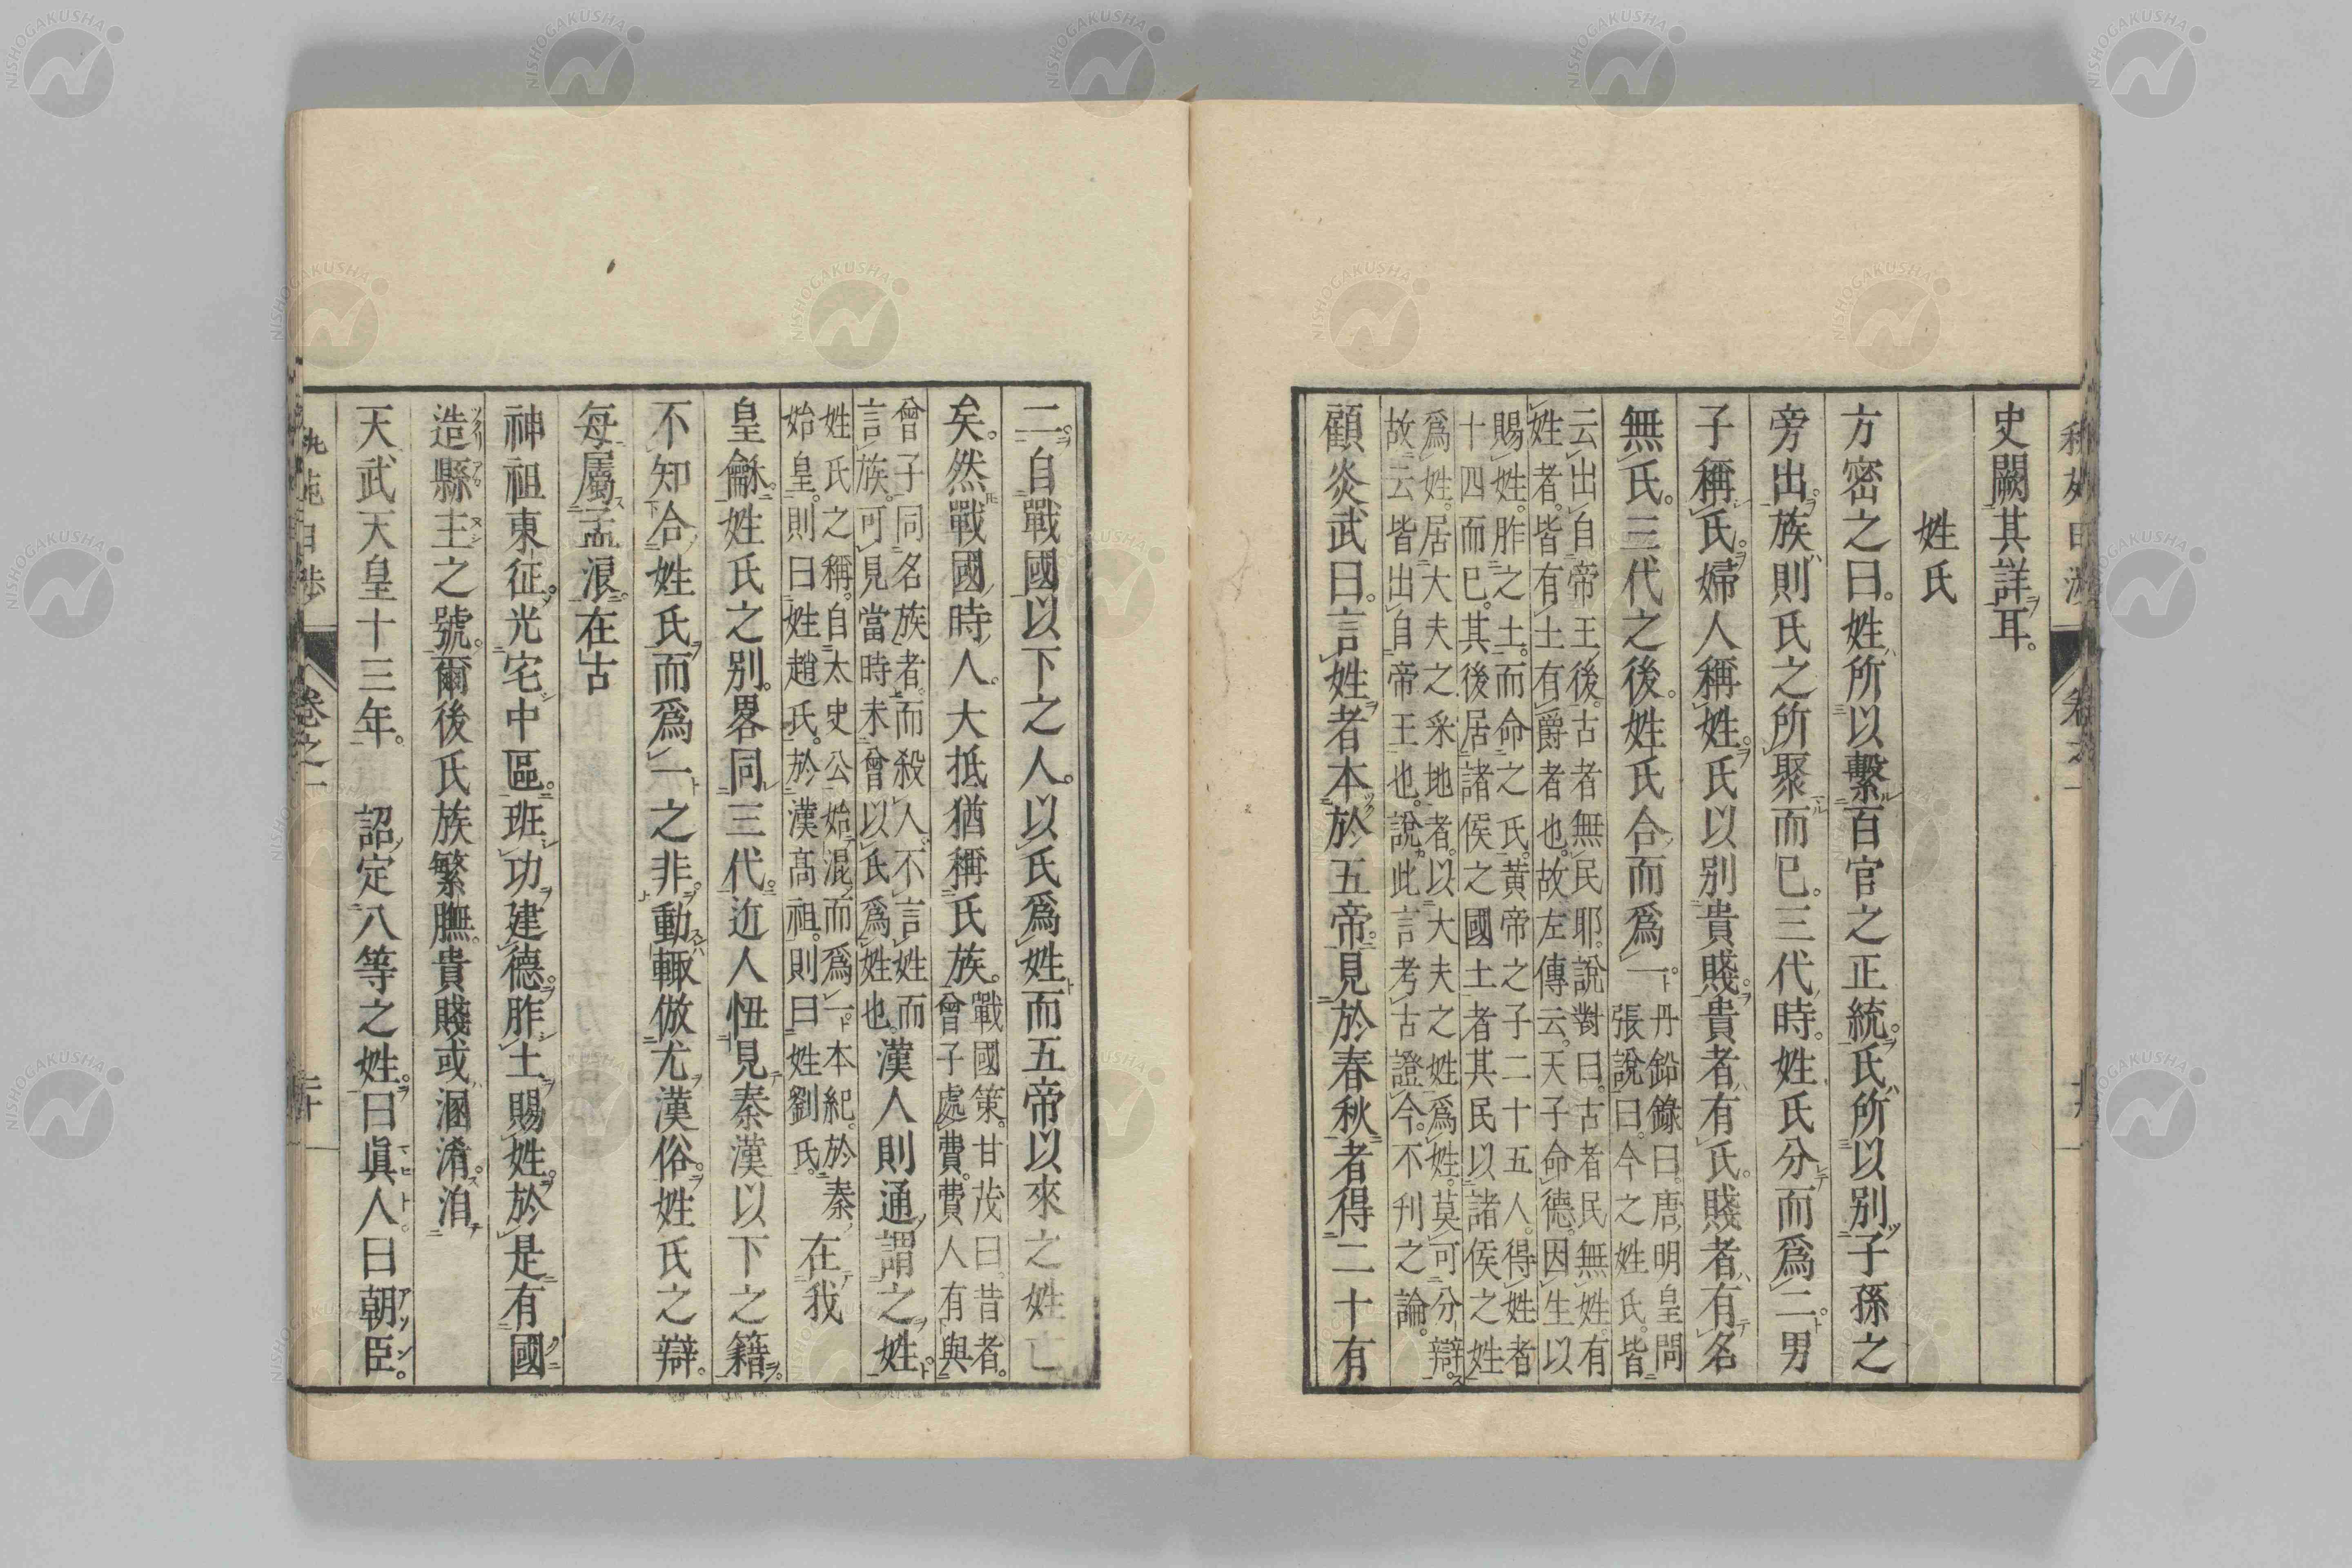 史闕其詳耳。
姓氏
方密之曰。姓所以繫百官之正統。氏所以別子孫之
旁出。族則氏之所聚而已。三代時。姓氏分而爲二。男
子稱氏。婦人稱姓。氏以別貴賤。貴者有氏。賤者有名
無氏。三代之後。姓氏合而爲一。
丹鉛錄曰。唐明皇問
張說曰。今之姓氏。皆
云出自帝王後。古者無民耶。說對曰。古者民無姓。有
姓者。皆有土有爵者也。故左傳云。天子命德。因生以
賜姓。胙之土。而命之氏。黄帝之子二十五人。得姓者
十四而已。其後居諸侯之國土者其民以諸侯之姓
爲姓。居大夫之采地者。以大夫之姓爲姓。莫可分辯。
故云皆出自帝王也。說此言考古證今。不刋之論。
顧炎武曰。言姓者本於五帝。見於春秋者得二十有
二。自戰國以下之人。以氏爲姓而五帝以來之姓亡
矣。然戰國時人。大抵猶稱氏族。
戰國策。甘茂曰。昔者。
曾子處費。費人有與
曾子同名族者。而殺人。不言姓而
言族。可見當時未曾以氏爲姓也。
漢人則通謂之姓。
姓氏之稱。自太史公始混而爲一。本紀。於秦
始皇。則曰姓趙氏。於漢高祖。則曰姓劉氏。
在我
皇龢姓氏之別。畧同三代。近人忸見秦漢以下之籍。
不知合姓氏而爲一之非。動輙倣尤漢俗。姓氏之辯。
每屬孟浪。在古
神祖東征。光宅中區。班功建德。胙土賜姓。於是有國
造縣主之號。爾後氏族繁膴。貴賤或溷淆。洎
天武天皇十三年。詔定八等之姓。曰眞人。曰朝臣。
卷之一